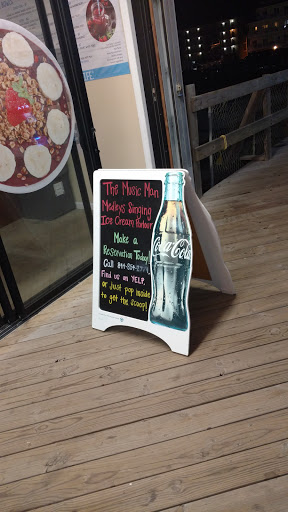 The Music Man
Medleys Singing
Ice Cream Parlour
Make a
Reservation Today
Call
Find us on YELP
or just pop inside
to get the scoop!
Coca-Cola